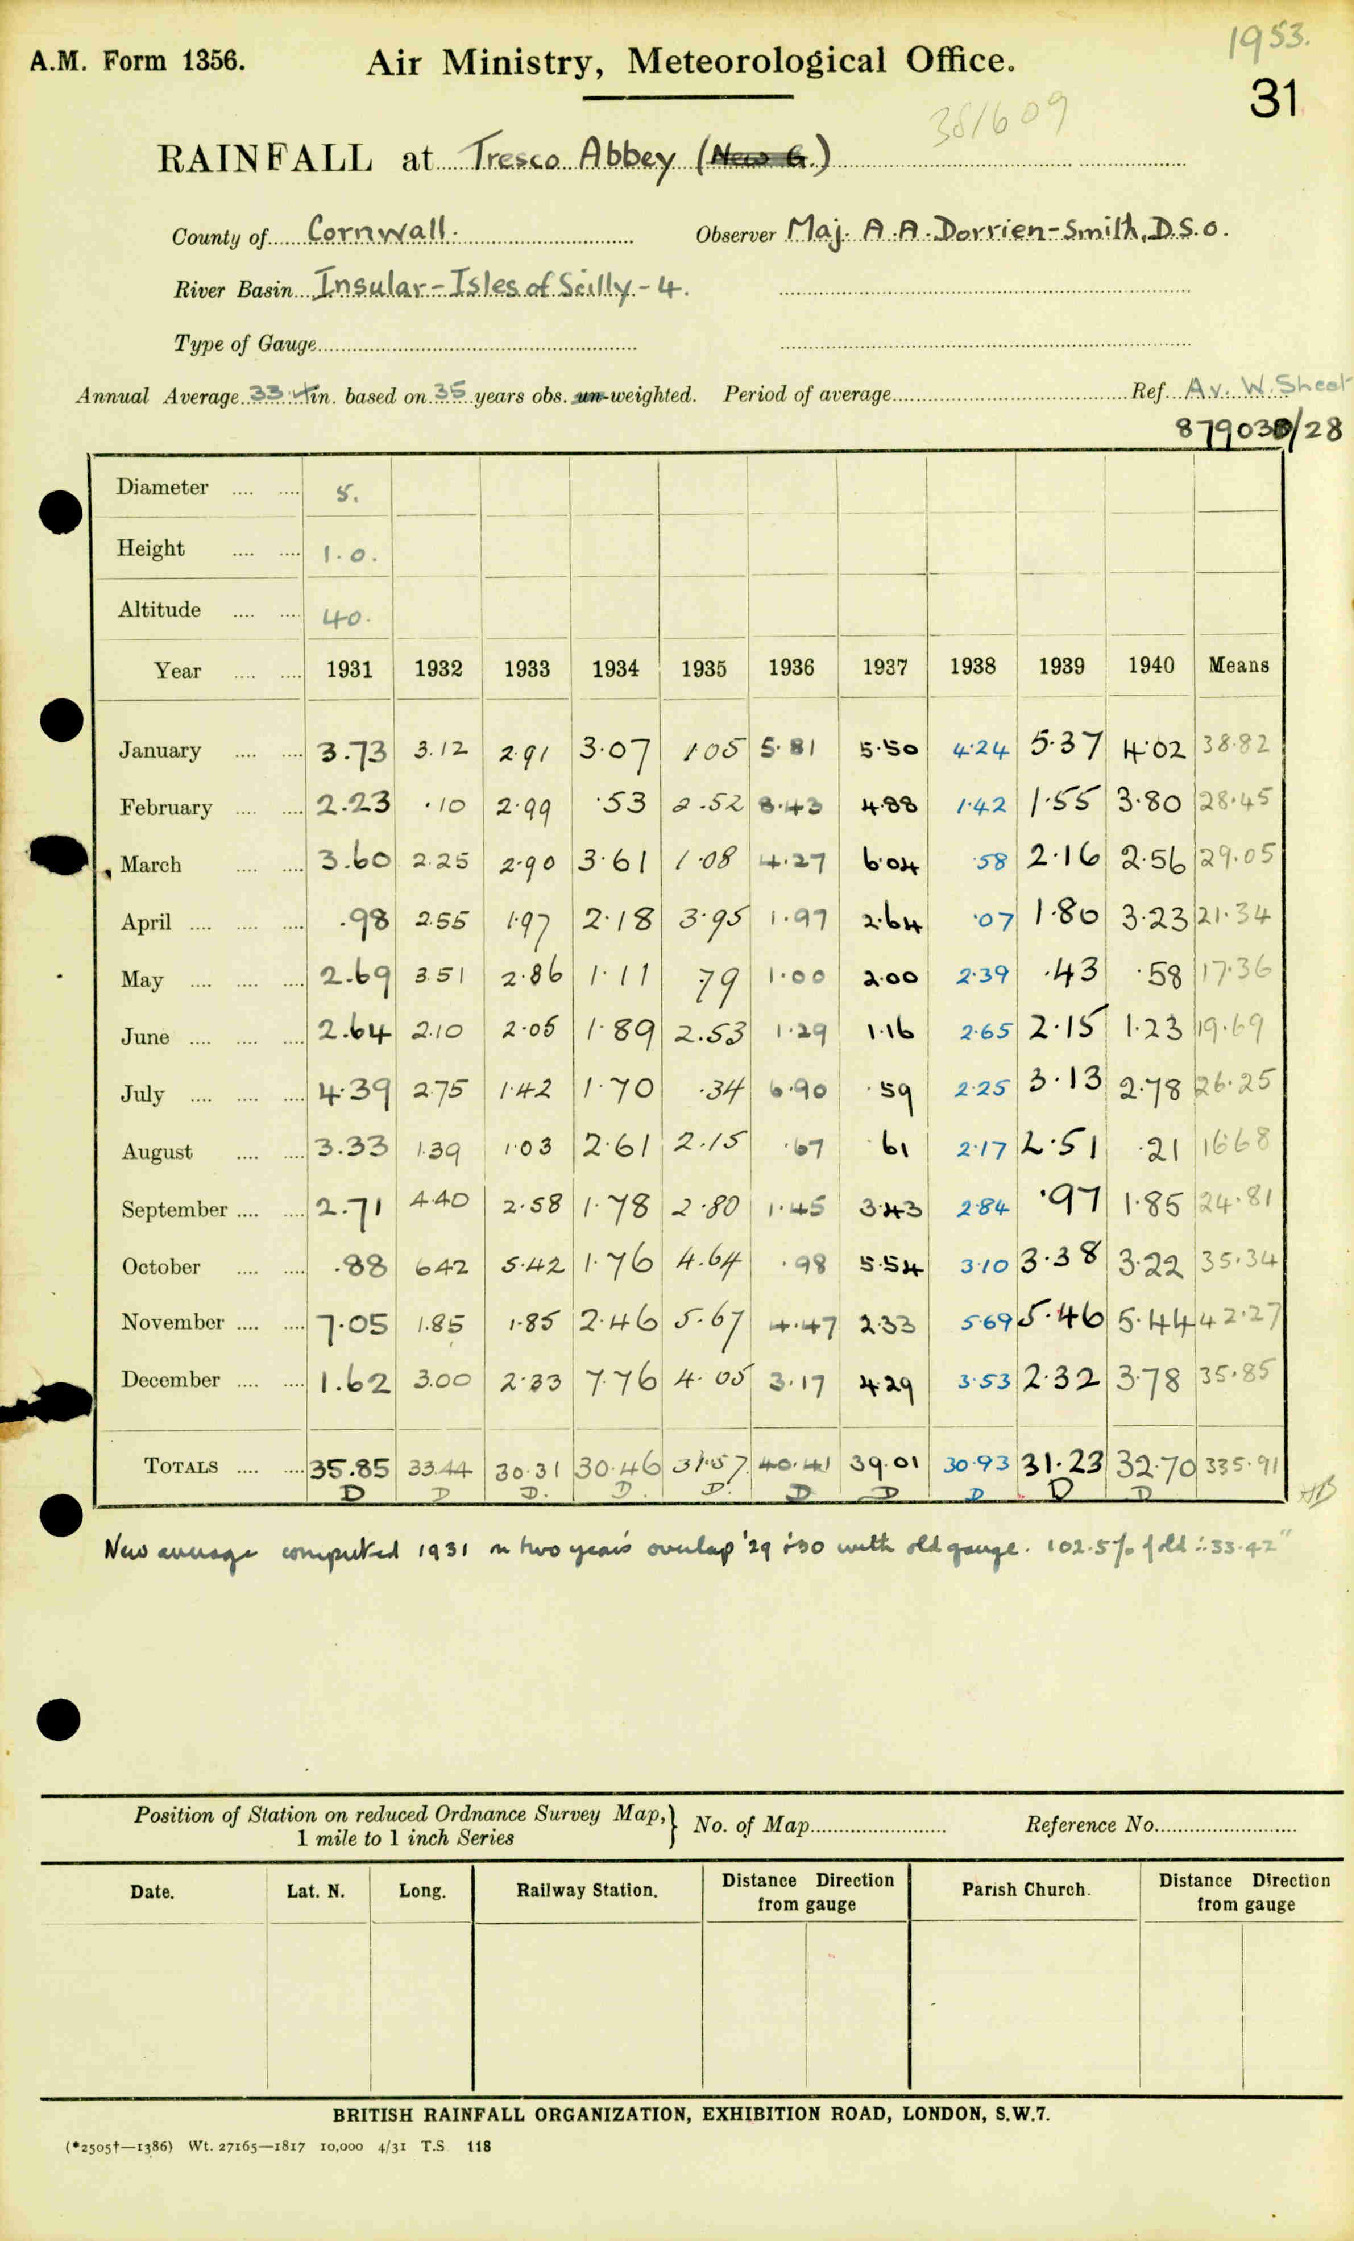 1953.
A.M. Form 1356. Air Ministry, Meteorological Office.
31
381609
RAINFALL at Tresco Abbey (New G.)
County of Cornwall. Observer Maj. A.A. Dorrien-Smith, D.S.O.
River Basin Insular-Isles of Scilly-4.
Type of Gauge
Annual Average 33.4 in. based on 35 years obs. un-weighted. Period of average Ref. Av. W. Sheet
/28
Diameter 5.
Height 1.0.
Altitude 40.
Year 1931 1932 1933 1934 1935 1936 1937 1938 1939 1940 Means
January 3.73 3.12 2.91 3.07 1.05 5.81 5.50 4.24 5.37 4.02 38.82
February 2.23 .10 2.99 .53 2.52 8.43 4.88 1.42 1.55 3.80 28.45
March 3.60 2.25 2.90 3.61 1.08 4.27 6.04 .58 2.16 2.56 29.05
April .98 2.55 1.97 2.18 3.95 1.97 2.64 .07 1.80 3.23 21.34
May 2.69 3.51 2.86 1.11 .79 1.00 2.00 2.39 .43 .58 17.36
June 2.64 2.10 2.05 1.89 2.53 1.29 1.16 2.65 2.15 1.23 19.69
July 4.39 2.75 1.42 1.70 .34 6.90 .59 2.25 3.13 2.78 26.25
August 3.33 1.39 1.03 2.61 2.15 .67 .61 2.17 2.51 .21 16.68
September 2.71 4.40 2.58 1.78 2.80 1.45 3.43 2.84 .97 1.85 24.81
October .88 6.42 5.42 1.76 4.64 .98 5.54 3.10 3.38 3.22 35.34
November 7.05 1.85 1.85 2.46 5.67 4.47 2.33 5.69 5.46 5.44 42.27
December 1.62 3.00 2.33 7.76 4.05 3.17 4.29 3.53 2.32 3.78 35.85
TOTALS 35.85 33.44 30.31 30.46 31.57 40.41 39.01 30.93 31.23 32.70 335.91
D D D. D. D. D D D D D
New average computed 1931 on two years overlap '29 & '30 with old gauge. 102.5% of old ∴ 33.42"
Position of Station on reduced Ordnance Survey Map,} No. of Map Reference No.
1 mile to 1 inch Series
Date. Lat. N. Long. Railway Station. Distance Direction from gauge Parish Church. Distance Direction from gauge
BRITISH RAINFALL ORGANIZATION, EXHIBITION ROAD, LONDON, S.W.7.
(*2505†—1386) Wt. 27165—1817 10,000 4/31 T.S. 118